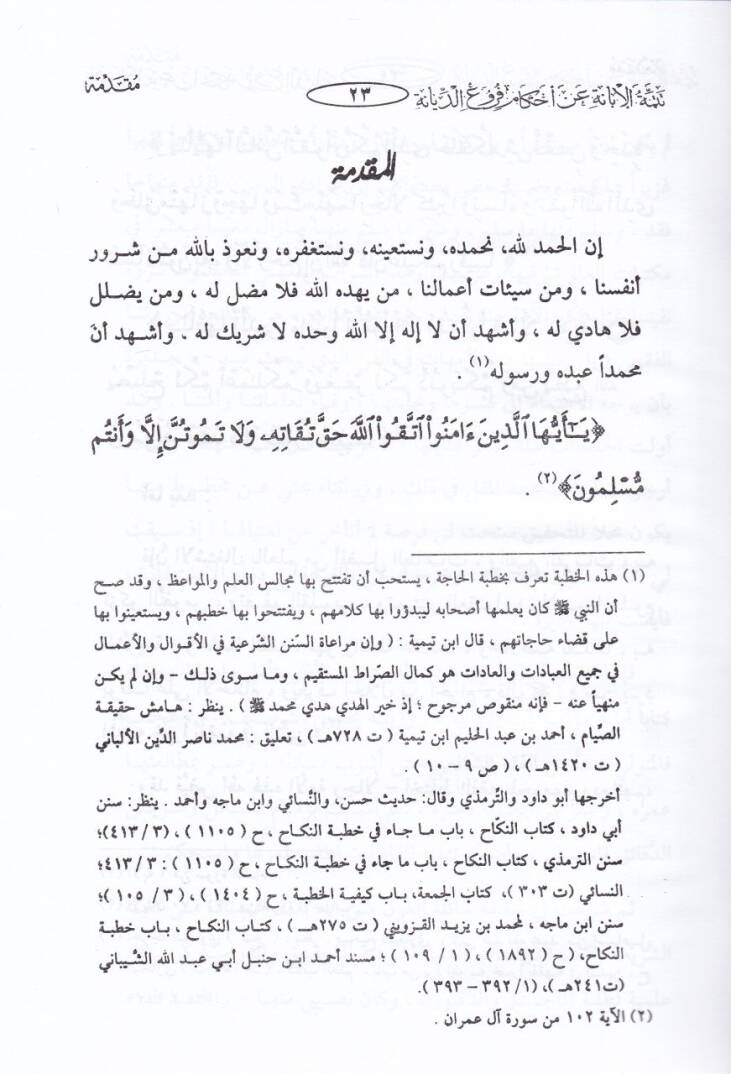 تتمة الإبانة عن أحكام فروع الديانة ٢٣ مقدمة
المقدمة
إن الحمد لله، نحمده، ونستعينه، ونستغفره، ونعوذ بالله من شرور
أنفسنا ، ومن سيئات أعمالنا ، من يهده الله فلا مضل له ، ومن يضلل
فلا هادي له ، وأشهد أن لا إله إلا الله وحده لا شريك له . وأشهد أن
محمداً عبده ورسوله(١) .
﴿يَٰٓأَيُّهَا ٱلَّذِينَ ءَامَنُوا۟ ٱتَّقُوا۟ ٱللَّهَ حَقَّ تُقَاتِهِۦ وَلَا تَمُوتُنَّ إِلَّا وَأَنتُم
مُّسْلِمُونَ﴾(٢) .
(١) هذه الخطبة تعرف بخطبة الحاجة ، يستحب أن تفتتح بها مجالس العلم والمواعظ ، وقد صح
أن النبي ﷺ كان يعلمها أصحابه ليبدؤوا بها كلامهم ، ويفتتحوا بها خطبهم ، ويستعينوا بها
على قضاء حاجاتهم ، قال ابن تيمية : (وإن مراعاة السّنن الشّرعية في الأقوال والأعمال
في جميع العبادات والعادات هو كمال الصّراط المستقيم ، وما سوى ذلك – وإن لم يكن
منهياً عنه – فإنه منقوص مرجوح ؛ إذ خير الهدي هدي محمد ﷺ ) . ينظر : هامش حقيقة
الصِّيام ، أحمد بن عبد الحليم ابن تيمية ( ت ٧٢٨هـ) ، تعليق : محمد ناصر الدِّين الألباني
( ت ١٤٢٠هـ) ، ( ص ٩ – ١٠ ) .
أخرجها أبو داود والتِّرمذي وقال: حديث حسن، والنَّسائي وابن ماجه وأحمد . ينظر: سنن
أبي داود ، كتاب النكّاح ، باب ما جاء في خطبة النكاح ، ح ( ١١٠٥ ) ، (٣ / ٤١٣)؛
سنن الترمذي ، كتاب النكاح ، باب ما جاء في خطبة النكاح ، ح ( ١١٠٥ ) : ٣ / ٤١٣؛
النسائي (ت ٣٠٣ )، كتاب الجمعة، باب كيفية الخطبة ، ح ( ١٤٠٤ ) ، (٣ / ١٠٥ )؛
سنن ابن ماجه ، لمحمد بن يزيد القزويني ( ت ٢٧٥هـ ) ، كتاب النكاح ، باب خطبة
النكاح، ( ح ( ١٨٩٢ ) ، (١ / ١٠٩ ) ؛ مسند أحمد ابن حنبل أبي عبد الله الشيباني
(ت٢٤١هـ )، (١/ ٣٩٢ – ٣٩٣).
(٢) الآية ١٠٢ من سورة آل عمران .